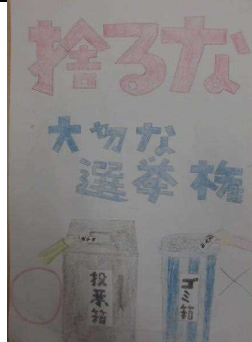 捨るな
大切な
選挙権
投票箱
ゴミ箱